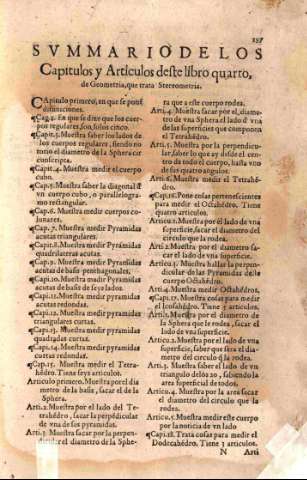 257
SVMMARIO DE LOS
Capitulos y Articulos deste libro quarto,
de Geometria, que trata Stereometria.
CApitulo primero, en que se ponẽ
difiniciones.
Cap.2. En que se dize que los cuer
pos regulares, son solos cinco.
Capit.3. Muestra saber los lados de
los cuerpos regulares, siendo no
torio el diametro de la Sphera cir
cunscripta.
Capit.4. Muestra medir el cuerpo
cubo.
Cap.5. Muestra saber la diagonal d̃
vn cuerpo cubo, o parallelogra-
mo rectangular.
Cap.6. Muestra medir cuerpos co-
lunares.
Cap.7. Muestra medir Pyramidas
acutas triangulares.
Capit.8. Muestra medir Pyramidas
quadrilateras acutas.
Cap.9. Muestra medir Pyramidas
acutas de bases pentagonales.
Cap.10. Muestra medir Pyramidas
acutas de basis de seys lados.
Capi.11. Muestra medir pyramidas
acutas redondas.
Capi.12. Muestra medir pyramidas
triangulares curtas.
Capi.13. Muestra medir pyramidas
quadradas curtas.
Capi.14. Muestra medir pyramidas
curtas redondas.
Cap.15. Muestra medir el Tetra-
hédro. Tiene seys articulos.
Articulo primero. Muestra por el dia
metro de la basis, sacar el de la
Sphera.
Arti.2. Muestra por el lado del Te-
trahédro, sacar la perpẽdicular de
vna de sus pyramidas.
Arti.3. Muestra por la perpen-
dicular el diametro de la Sphe-
ra que a este cuerpo rodea.
Arti.4. Muestra sacar por el, diame-
tro de vna Sphera el lado d̃ vna
de las superficies que componen
el Tetrahédro.
Arti.5. Muestra por la perpendicu-
lar, saber lo que ay desde el cen-
tro de todo el cuerpo, hasta vno
de sus quatro angulos.
Arti.6. Muestra medir el Tetrahé-
dro.
Capi.16. Pone cosas pertenescientes
para medir el Octahédro. Tiene
quatro articulos.
Articu.1. Muestra por el lado de vna
superficie, sacar el diametro del
circulo que la rodea.
Articu.2. Muestra por el diametro sa-
car el lado de vna superficie.
Articu.3. Muestra hallar la perpen-
dicular de las Pyramidas deste
cuerpo Octahédro.
Arti.4. Muestra medir Octahédros.
Capi.17. Muestra cosas para medir
el Icosahédro. Tiene 5. articulos.
Arti.1. Muestra por el diametro de
la Sphera que le rodea, sacar el
lado de vna superficie.
Artic.2. Muestra por el lado de vna
superficie, saber que sera el dia-
metro del circulo q̃ la rodea.
Arti.3. Muestra saber el lado de vn
triangulo destos 20, sabiendo la
area superficial de todos.
Artic.4. Muestra por la area sacar
el diametro del circulo que la
rodea.
Artic.5. Muestra medir este cuerpo
por la noticia de vn lado
Capi.18. Trata cosas para medir el
Dodecahédro. Tiene 3. articulos.
N Arti